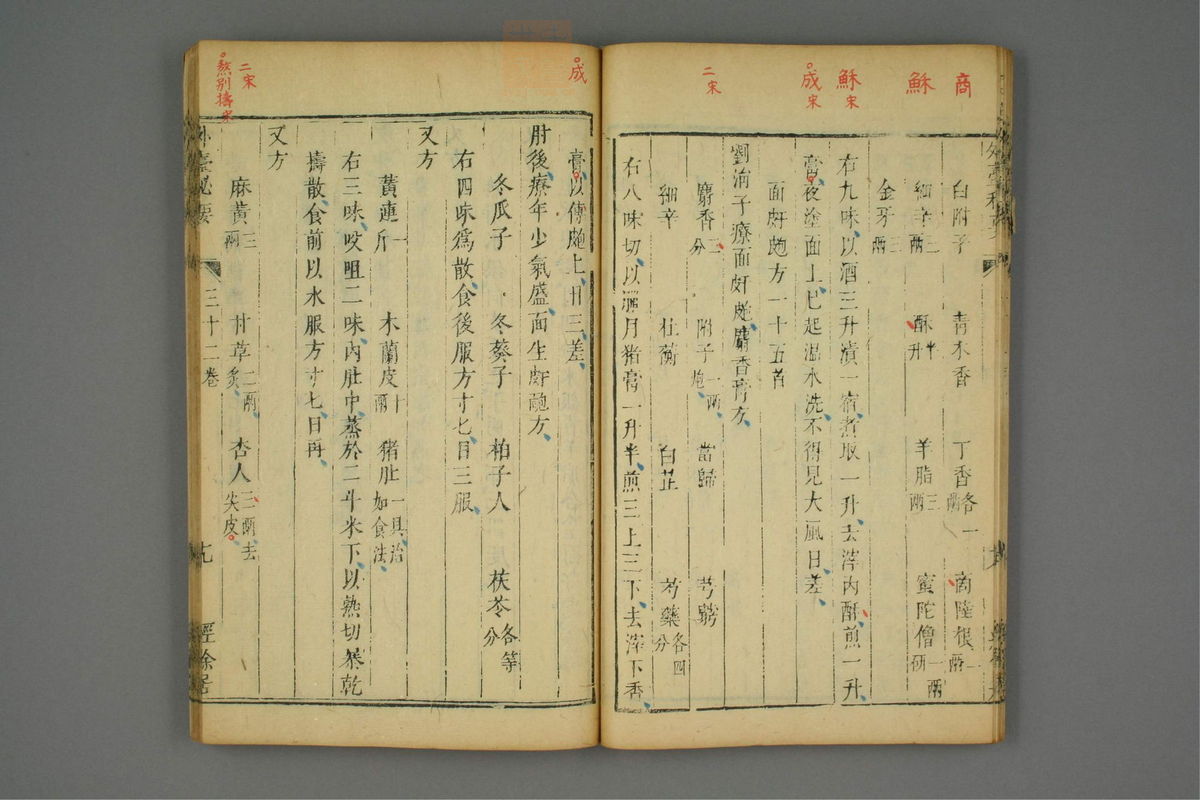 商
蘇
蘇宋
成宋
二宋
白附子　青木香　丁香各一兩　商陸根一兩
細辛三兩　酥半升　羊脂三兩　蜜陀僧一兩研
金牙三兩
右九味以酒三升漬一宿煮取一升去滓內酥煎一升
膏夜塗面上七起溫水洗不得見大風日差
面皯皰方一十五首
劉涓子療面皯皰麝香膏方
麝香三分　附子一兩炮　當歸　芎藭
細辛　杜蘅　白芷　芍藥各四分
右八味切以臘月猪膏一升半煎三上三下去滓下香
成
二宋
熬別擣宋
膏以傅皰上廿三差
肘後療年少氣盛面生皯皰方
冬瓜子　冬葵子　柏子人　茯苓各等分
右四味爲散食後服方寸匕日三服
又方
黃連一斤　木蘭皮十兩　猪肚一具治如食法
右三味㕮咀二味內肚中蒸於二斗米下以熟切暴乾
擣散食前以水服方寸匕日再
又方
麻黃三兩　甘草二兩炙　杏人三兩去尖皮
外臺秘要　三十二卷　七　經餘居